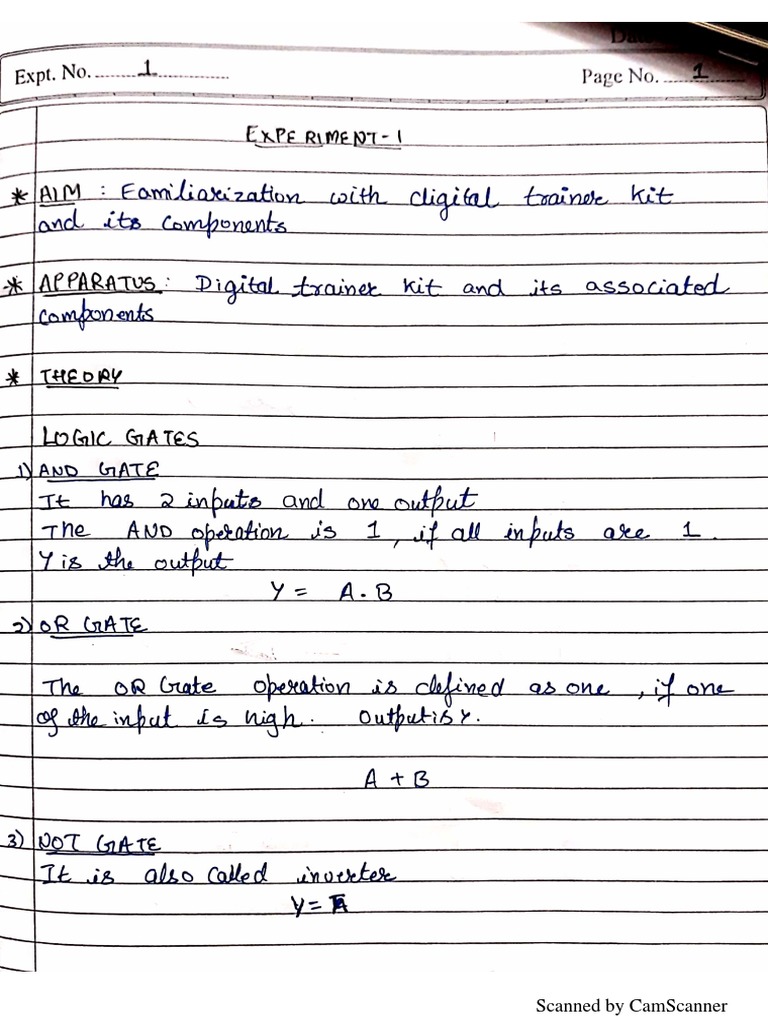 Expt. No. 1
Page No. 1
EXPERIMENT-1
* AIM : Familiarization with digital trainer kit
and its components
* APPARATUS : Digital trainer kit and its associated
components
* THEORY
LOGIC GATES
1) AND GATE
It has 2 inputs and one output
The AND operation is 1, if all inputs are 1.
Y is the output
Y = A.B
2) OR GATE
The OR Gate operation is defined as one, if one
of the input is high. Output is Y.
A + B
3) NOT GATE
It is also called inverter
Y = A̅
Scanned by CamScanner